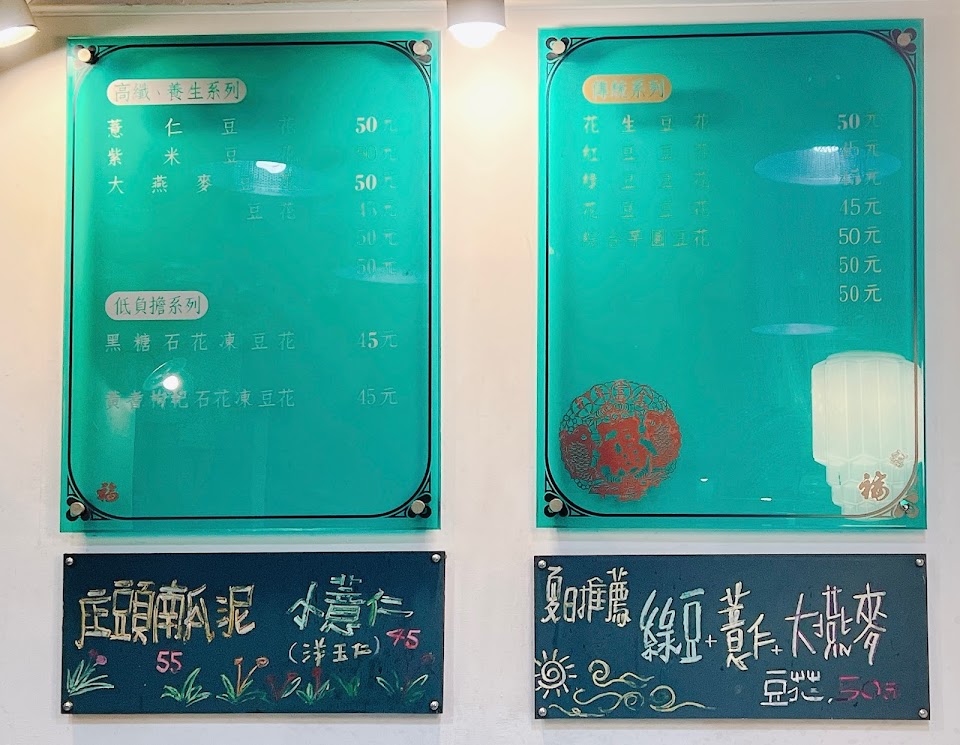 高纖、養生系列
薏仁豆花 50元
紫米豆花
大燕麥 50元
豆花 45元
50元
50元
低負擔系列
黑糖石花凍豆花 45元
黃耆枸杞石花凍豆花 45元
福
傳統系列
花生豆花 50元
紅豆豆花 45元
綠豆豆花
花豆豆花 45元
芋圓豆花 50元
50元
50元
福
福
庄頭南瓜泥
55
小薏仁
(洋玉仁) 45
夏日推薦
綠豆+薏仁+大燕麥
豆花. 50元